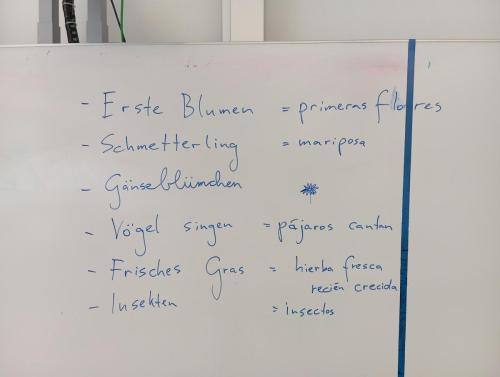 - Erste Blumen = primeras flores
- Schmetterling = mariposa
- Gänseblümchen
- Vögel singen = pájaros cantan
- Frisches Gras = hierba fresca
recién crecida
- Insekten = insectos